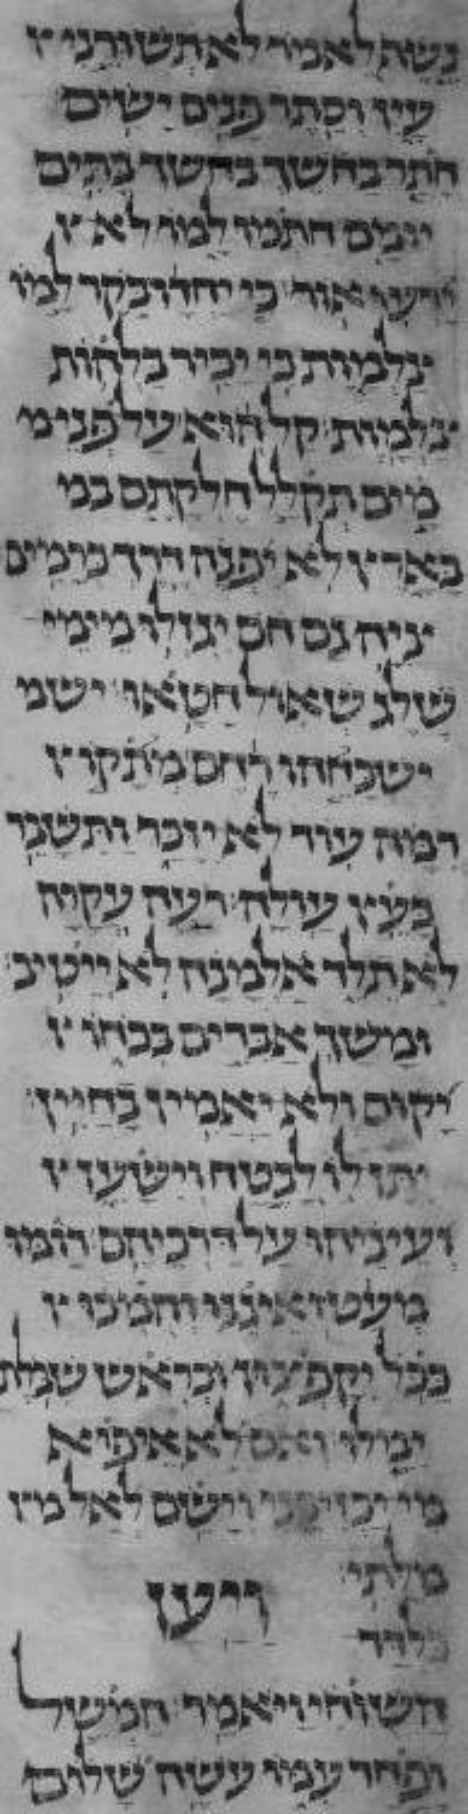 נשף לאמר לא תשורני
עין וסתר פנים ישים
חתר בחשך בחשך בתים
יומם חתמו למו לא
ידעו אור כי יחדו בקר למו
צלמות כי יכיר בלהות
צלמות קל הוא על פני מ
מים תקלל חלקתם
בארץ לא יפנה דרך כרמים
ציה גם חם יגזלו מימי
שלג שאול חטאו ישכ
ישכחהו רחם מתקו
רמה עוד לא יזכר ותשבר
כעץ עולה רעה עקרה
לא תלד אלמנה לא ייטיב
ומשך אברים בכחו
יקום ולא יאמין בחיין
יתן לו לבטח וישען
ועיניהו על דרכיהם רומו
מעט ואיננו והמכו
ככל יקפצון וכראש שבלת
ימלו ואם לא איפוא
מי יכזיבני וישם לאל מ
מלתי ויען
בלדד
השוחי ויאמר המשל
ופחד עמו עשה שלום